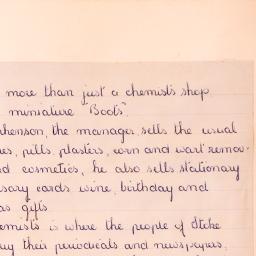 more than just a chemists shop,
miniature "Boots".
henson, the manager, sells the usual
es, pills, plasters, corn and wart remov-
d cosmetics, he also sells stationary
sary cards, wine, birthday and
as gifts.
emists is where the people of Stoke
uy their periodicals and newspapers,